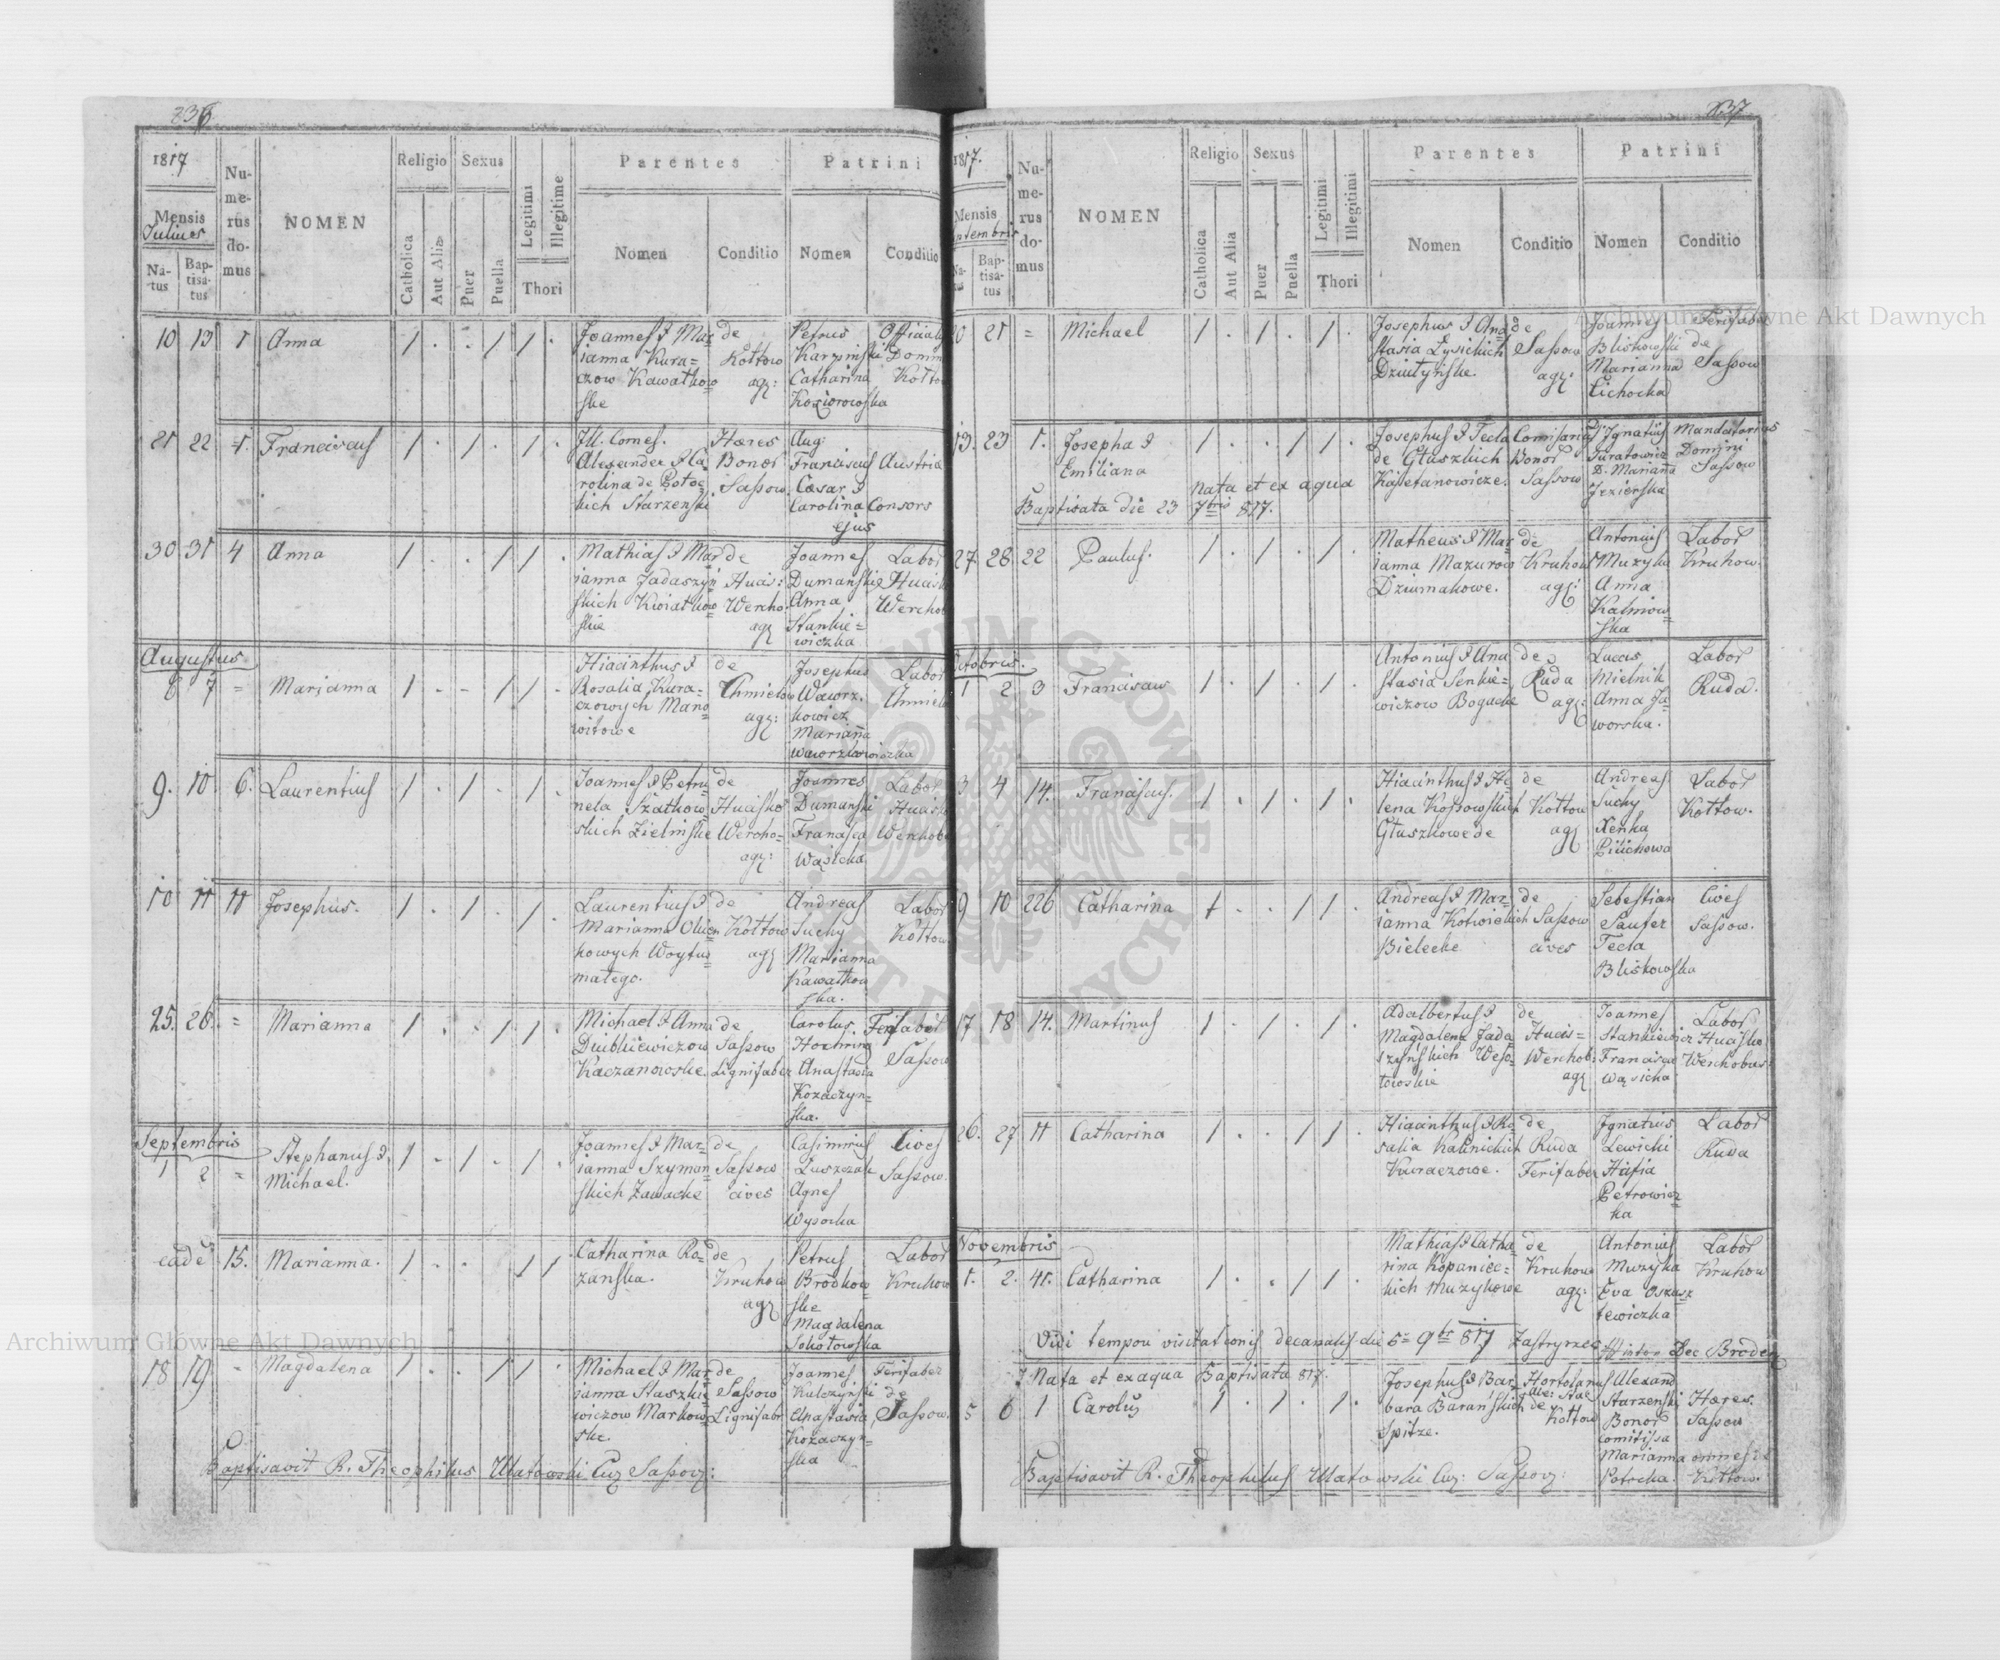 836
1817
Mensis
Julius
Na-
tus
Bap-
tisa-
tus
Nu-
me-
rus
do-
mus
NOMEN
Religio
Catholica
Aut Alia
Sexus
Puer
Puella
Legitimi
Illegitime
Thori
Parentes
Nomen
Conditio
Patrini
Nomen
Conditio
10 13 1 Anna
Joannes & Mar
ianna Kura=
czow Kawałkow
skie
de
Kołtow
agr:
Petrus
Karziński
Catharina
Koziorowska
21 22 1. Franciscus
Ill. Comes.
Alexander & Ca
rolina de Potoc
kich Starzeński
Hæres
Bonor
Sassow.
Aug:
Franciscus
Cæsar &
Carolina
Austria
Consors
ejus
30 31 4 Anna
Mathias & Mar
ianna Jadaszyń
skich Kwiatkow
skie
de
Hucis:
Wercho.
agr
Joannes
Dumański &
Anna
Stankie=
wiczka
Labor
Augustus
6 7 = Marianna
Hiacinthus &
Rosalia Kura-
czowych Mano
witowe
de
Chmielow
agr:
Josephus
Wawrz.
kowicz
Marianna
Labor
9. 10. 6. Laurentius
Joannes & Petro
nela Szatkow
skich Zielińskie
de
Hucisko
Wercho-
agr:
Joannes
Dumański
Francisca
Wąsicka
Labor
10 11 11 Josephus.
Laurentius &
Marianna
kowych Woytus
małego.
de
Kołtow
agr
Andreas
Suchy
Marianna
Kawałkow
ska.
Labor
Kołtow
25. 26. = Marianna
Michael & Anna
Dziubkiewiczow
Kaczanowskie.
de
Sassow
Lignifaber
Carolus
Anastasia
Kozaczyn=
ska.
Ferifaber
Sassow
Septembris
1 2 = Stephanus &
Michael.
Joannes & Mar
ianna Szyman
skich Zawackie
de
Sassow
cives
Casimirus
Łuszczak
Agnes
Wysocka
Cives
Sassow.
eadē 15. Marianna.
Catharina Ro=
zanska.
de
Kruhow
agr
Petrus
Brodkow
ski
Magdalena
Sokołowska
Labor
Kruhow
18 19 - Magdalena
Michael & Mar
ianna Staszkie
wiczow Markow
skie.
de
Sassow
Lignifabr
Joannes
Kulczyński
Anastasia
Kozaczyn=
ska
Ferifaber
de
Sassow.
Baptisavit R. Theophilus Ułatowski Cur Sassov:
837
1817.
Mensis
Septembris
Bap-
tisa-
tus
Nu-
me-
rus
do-
mus
NOMEN
Religio
Catholica
Aut Alia
Sexus
Puer
Puella
Legitimi
Illegitimi
Thori
Parentes
Nomen
Conditio
Patrini
Nomen
Conditio
20 21 = Michael
Josephus & Ana
stasia Łysickich
Dziutyńskie.
de
Sassow
agr:
Joannes
Bliskowski
Marianna
Cichocka
Ferifaber
de
Sassow
13. 23 1. Josepha &
Emiliana
nata et ex aqua
Baptisata die 23 7bris 817.
Josephus & Tecla
de Głuszkich
Kajetanowicze.
Comisarius
Bonor
Sassow
D. Ignatius
Juratowicz
D. Marianna
Jezierska
Mandatarius
Dominii
Sassow
27 28 22 Paulus.
Matheus & Mar
ianna Mazurow
Dziumakowe.
de
Kruhow
agr:
Antonius
Muzyka
Anna
Kalinow
ska
Labor
Kruhow.
Octobris.
1 2 3 Franciscus
Antonius & Ana
stasia Senkie=
wiczow Bogackie
de
Ruda
agr:
Lucas
Mielnik
Anna Ja
worska.
Labor
Ruda.
3 4 14. Franciscus.
Hiacinthus & He
lena Kossowskich
Głuszkowe
de
Kołtow
agr
Andreas
Suchy
Xenka
Labor
Kołtow.
9 10 226 Catharina
Andreas & Mar
ianna Kotwickich
Bielecke
de
Sassow
cives
Sebestian
Saufer
Tecla
Bliskowska
Cives
Sassow.
17 18 14. Martinus
Adalbertus &
Magdalena Jada
szyńskich Weso
łowskie
de
Hucis=
Werchob:
agr
Joannes
Stankiewicz
Francisca
Wąsicka
Labor
Huciska
Werchobus:
26. 27 11 Catharina
Hiacinthus & Ro
salia Kalinickich
Kuraczowe.
de
Ruda
Ferifaber
Ignatius
Lewicki
Hasia
Petrowicz
ka
Labor
Ruda
Novembris
1. 2. 41. Catharina
Mathias & Catha
rina Kopaniec=
kich Muzykowe
de
Kruhow
agr:
Antonius
Muzyka
Eva
Labor
Kruhow
Vidi tempore visitationis decanalis die 5= 9br 817
& Nata et ex aqua Baptisata 817.
5 6 1 Carolus
Josephus & Bar
bara Barańskich
Spitze.
Hortolanus
de
Kołtow
Alexand
Starzenski
Bonor
comitissa
Marianna
Potocka.
Hæres.
Sassow
Kołtow.
Baptisavit R. Theophilus Ułatowski Cur: Sassov:
Archiwum Główne Akt Dawnych
Archiwum Główne Akt Dawnych
ARCHIWUM GŁÓWNE AKT DAWNYCH